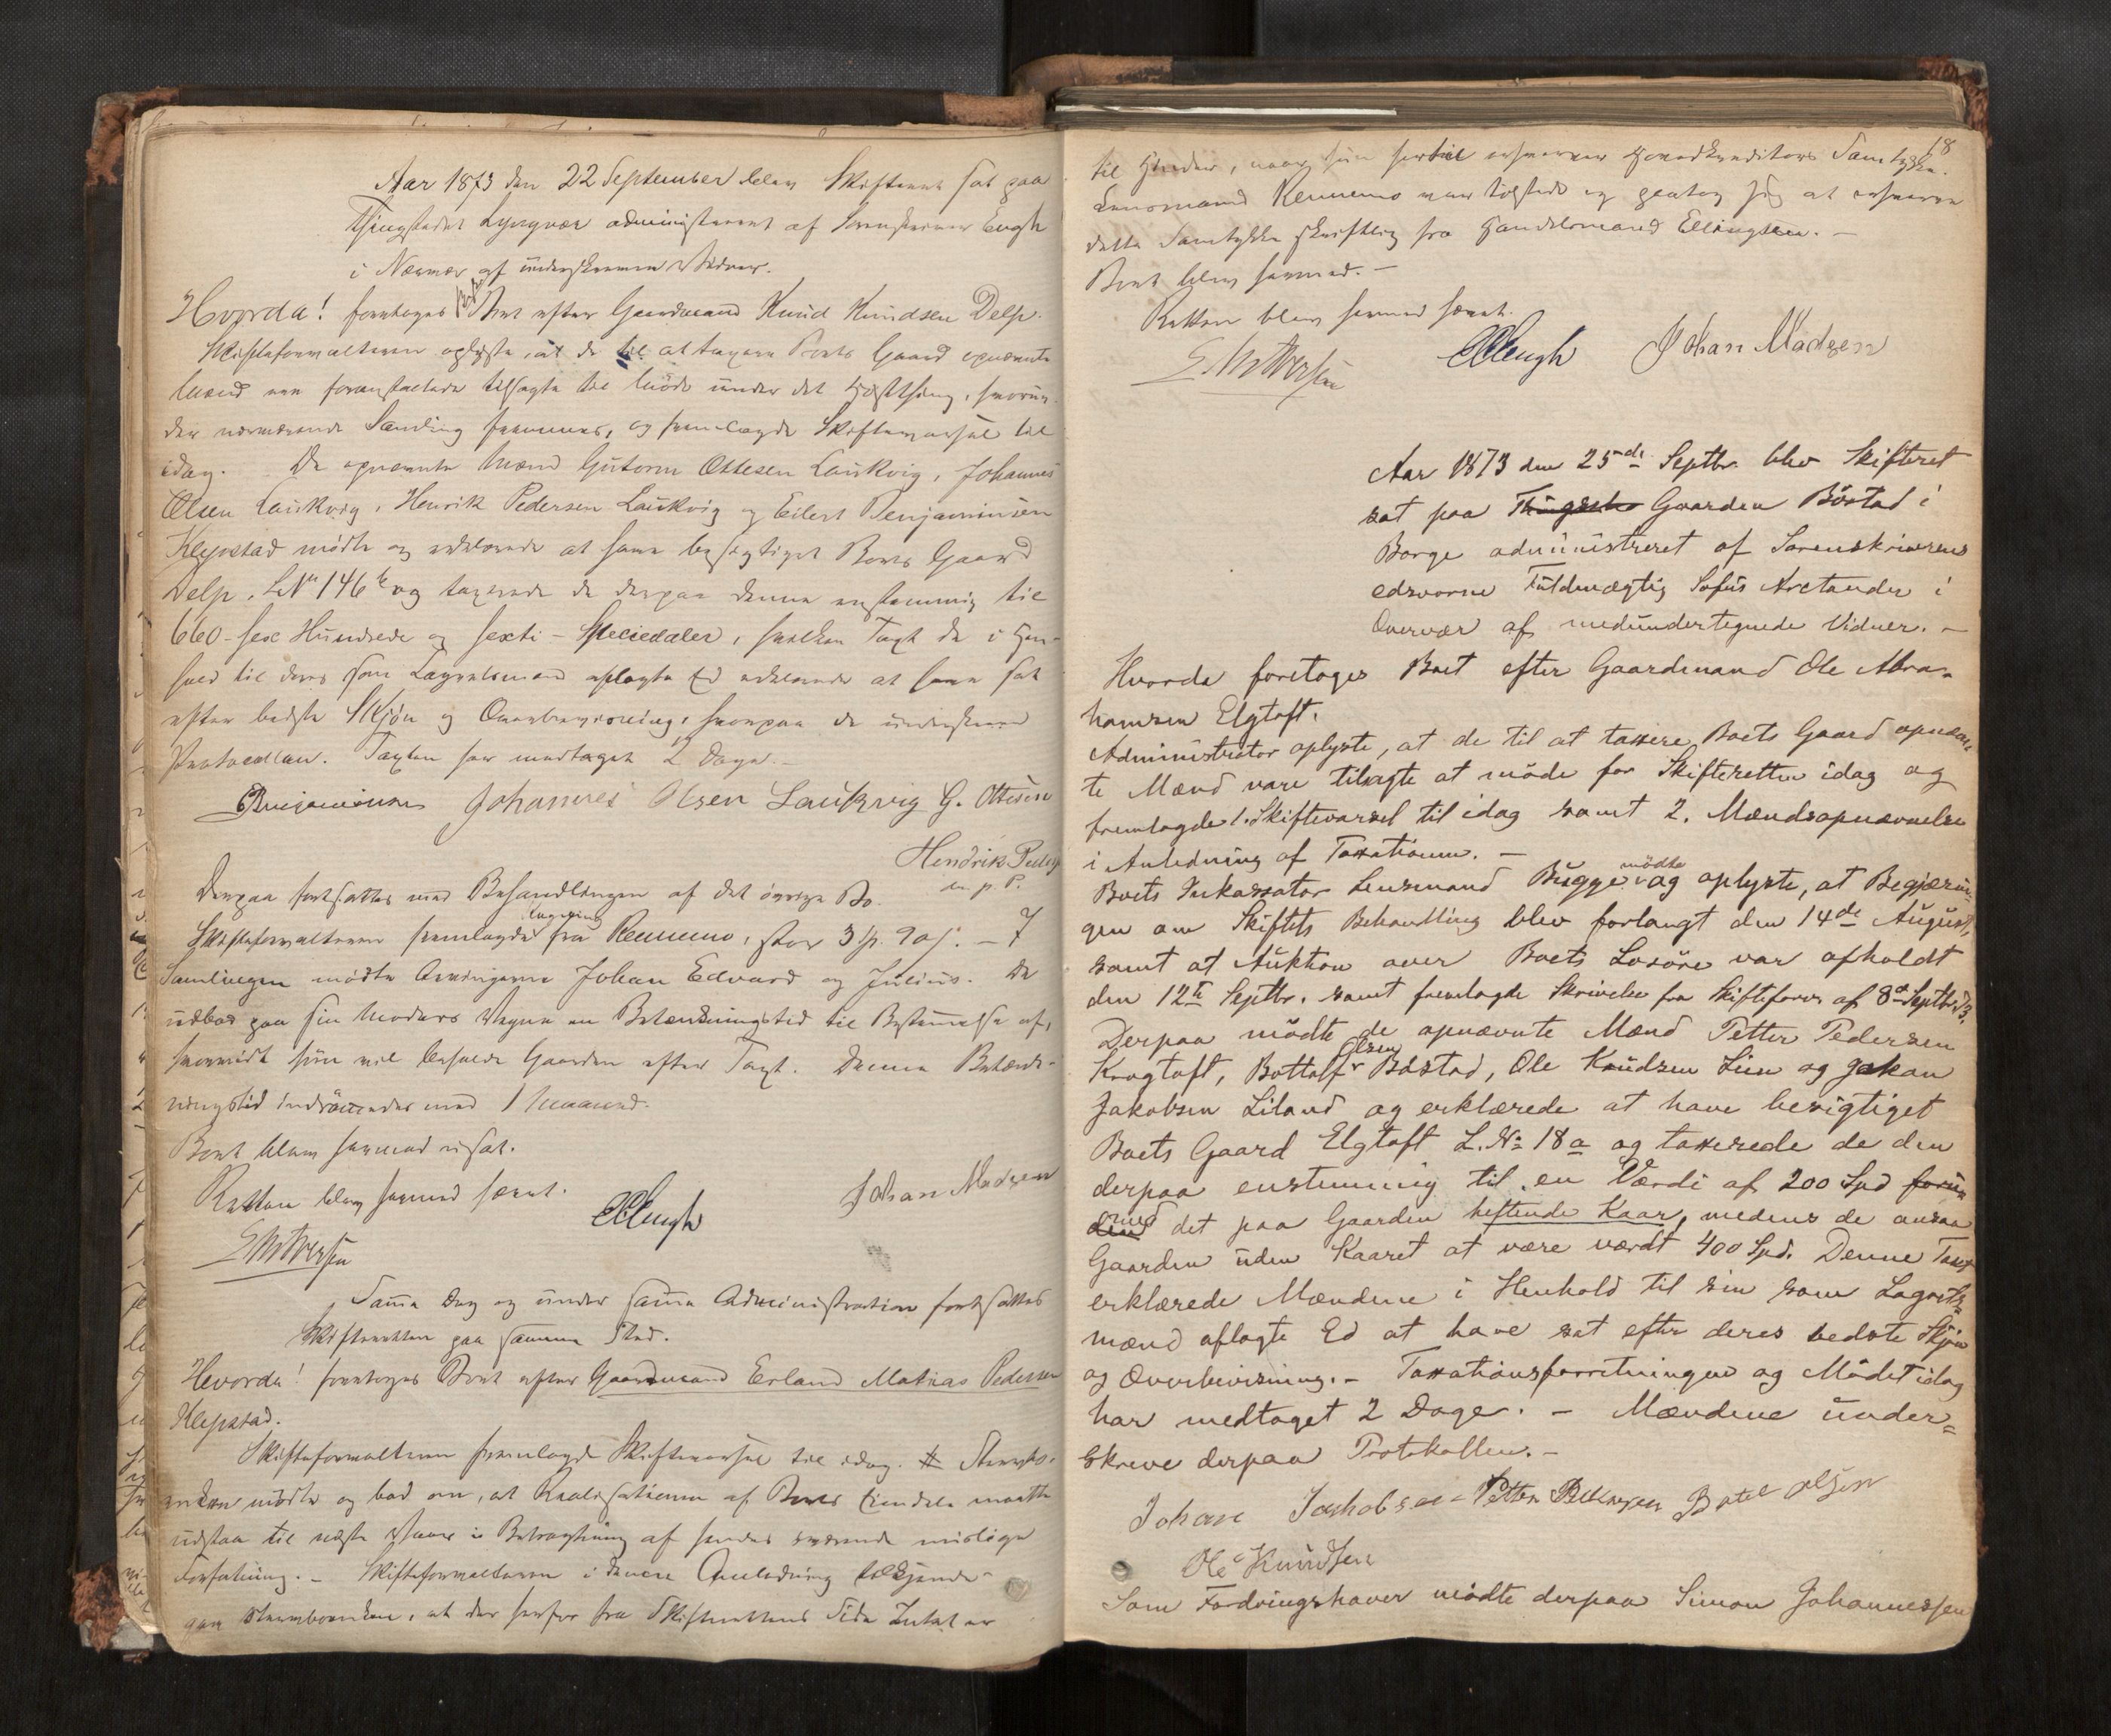 Aar 1873 den 22 September blev Skifteret sat paa
Thingstedet Lyngvær administreret af Sorenskriver Eugh
i Nærvær af underskrevne Vidner.
Hvorda! foretoges Boet efter Gaardmand Knud Knudsen Delp.
Skifteforvalteren oplyste, at de til at taxere Boets Gaard opnævnte
Mænd var foranstaltede tilsagte til Møde under det Høstthing, hvorun-
der nærværende Samling fremmes, og fremlagde Skiftevarsel til
idag. De opnævnte Mænd Guttorm Ottesen Laukvig, Johannes
Olsen Laukvig, Henrik Pedersen Laukvig og Eilert Benjaminsen
Klepstad mødte og erklærede at have besigtiget Boets Gaard
Delp, L.Nr 146 og taxerede de derpaa denne enstemmig til
660 - sex Hundrede og sexti - Speciedaler, hvilken Taxt de i Hen-
hold til deres som Lagrettesmænd aflagte Ed erklærede at have sat
efter bedste Skjøn og Overbevisning, hvorpaa de underskrev
Protocollen. Taxten har medtaget 2 Dage. -
Benjaminsen Johannes Olsen Laukvig G. Ottesen
Hendrik Peders
m. p. P.
Derpaa fortsattes med Behandlingen af det øvrige Bo.
Skifteforvalteren fremlagde fra Rennemo, stor 3 Sp. 90 s. - I
Samlingen mødte Arvingerne Johan Edvard og Julius. De
udbad paa sin Moders Vegne en Betænkningstid til Bestemmelse af,
hvorvidt hun vil beholde Gaarden efter Taxt. Denne Betænk-
ningstid indrømmedes med 1 Maaned.
Boet blev hermed udsat.
Retten blev hermed hævet.
CEugh Johan Madsen
Samme Dag og under samme Administration fortsattes
Skifteretten paa samme Sted.
Hvorda! foretoges Boet efter Gaardmand Erland Matias Pedersen
Klepstad.
Skifteforvalteren fremlagde Skiftevarsel til idag. Stervbo-
enken mødte og bad om, at Realisationen af Boets Eiendele maatte
udstaa til næste Vaar i Betragtning af hendes værende mislige
Forfatning. - Skifteforvalteren i denne Anledning tilkjende-
gav Stervboenken, at der herfor fra Skifterettens Side Intet er
18
til Hinder, naar hun hertil erhverver Hovedkreditors Samtykke.
Lensmand Rennemo var tilstede og paatog sig at erhverve
dette Samtykke skriftlig fra Handelsmand Ellingsen. -
Boet blev hermed. -
Retten blev hermed hævet.
CEugh Johan Madsen
Aar 1873 den 25de Septbr. blev Skifteret
sat paa Thingste Gaarden Böstad i
Borge administreret af Sorenskriverens
edsvorne Fuldmægtig Sofus Arctander i
Overvær af medundertegnede Vidner. -
Hvorda foretoges Boet efter Gaardmand Ole Abra-
hamsen Elgtoft.
Administrator oplyste, at de til at taxere Boets Gaard opnævn-
te Mænd vare tilsagte at möde for Skifteretten idag og
fremlagde 1. Skiftevarsel til idag samt 2. Mændsopnævnelse
i Anledning af Taxationen. -
Boets Inkassator Lensmand Bugge mödte og oplyste, at Begjærin-
gen om Skiftets Behandling blev forlangt den 14de August,
samt at Auktion over Boets Lösöre var afholdt
den 12te Septbr. samt fremlagde Skrivelse fra Skifteforv. af 8de Septbr. 73.
Derpaa mödte de opnævnte Mænd Petter Pedersen
Krogtoft, Bottolf Olsen Böstad, Ole Knudsen Lien og Johan
Jakobsen Liland og erklærede at have besigtiget
Boets Gaard Elgtoft L.No 18a og taxerede de den
derpaa enstemmig til en Værdi af 200 Spd forun
den med det paa Gaarden heftende Kaar, medens de ansaa
Gaarden uden Kaaret at være værdt 400 Spd. Denne Taxt
erklærede Mændene i Henhold til sin som Lagretts-
mænd aflagte Ed at have sat efter deres bedste Skjön
og Overbevisning. - Taxationsforretningen og Mödet idag
har medtaget 2 Dage. - Mændene under-
skrev derpaa Protokollen. -
Johan Jakobsen Petter Pedersen Botel Olsen
Ole Knudsen
Som Fordringshaver mödte derpaa Simon Johannessen